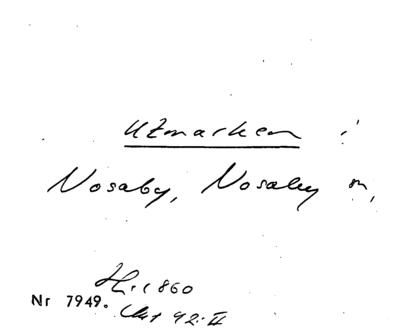 Utmarken i
Nosaby, Nosaby sn,
1860
Nr 7949.
42:II